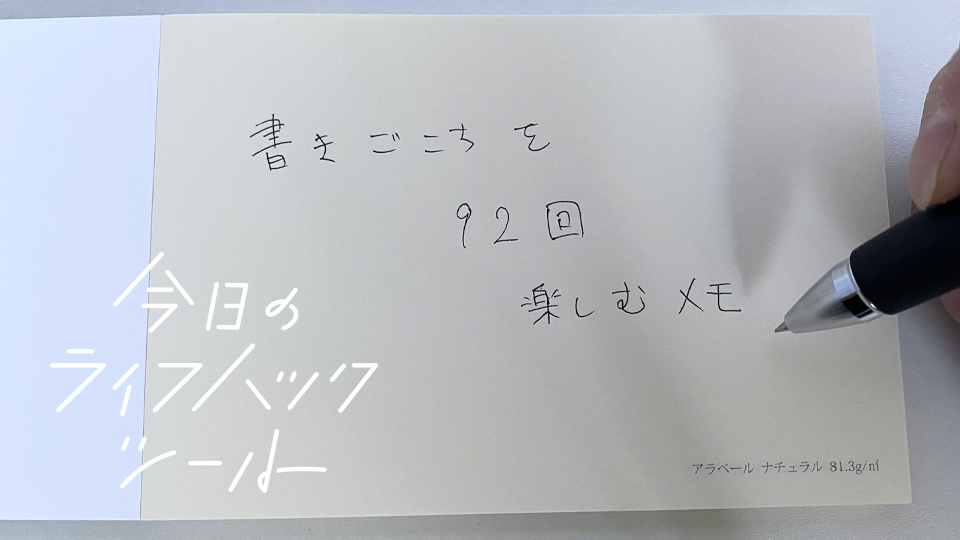 書きごこちを
92回
楽しむメモ
今日の
ライフハック
ツール
アラベール ナチュラル 81.3g/㎡